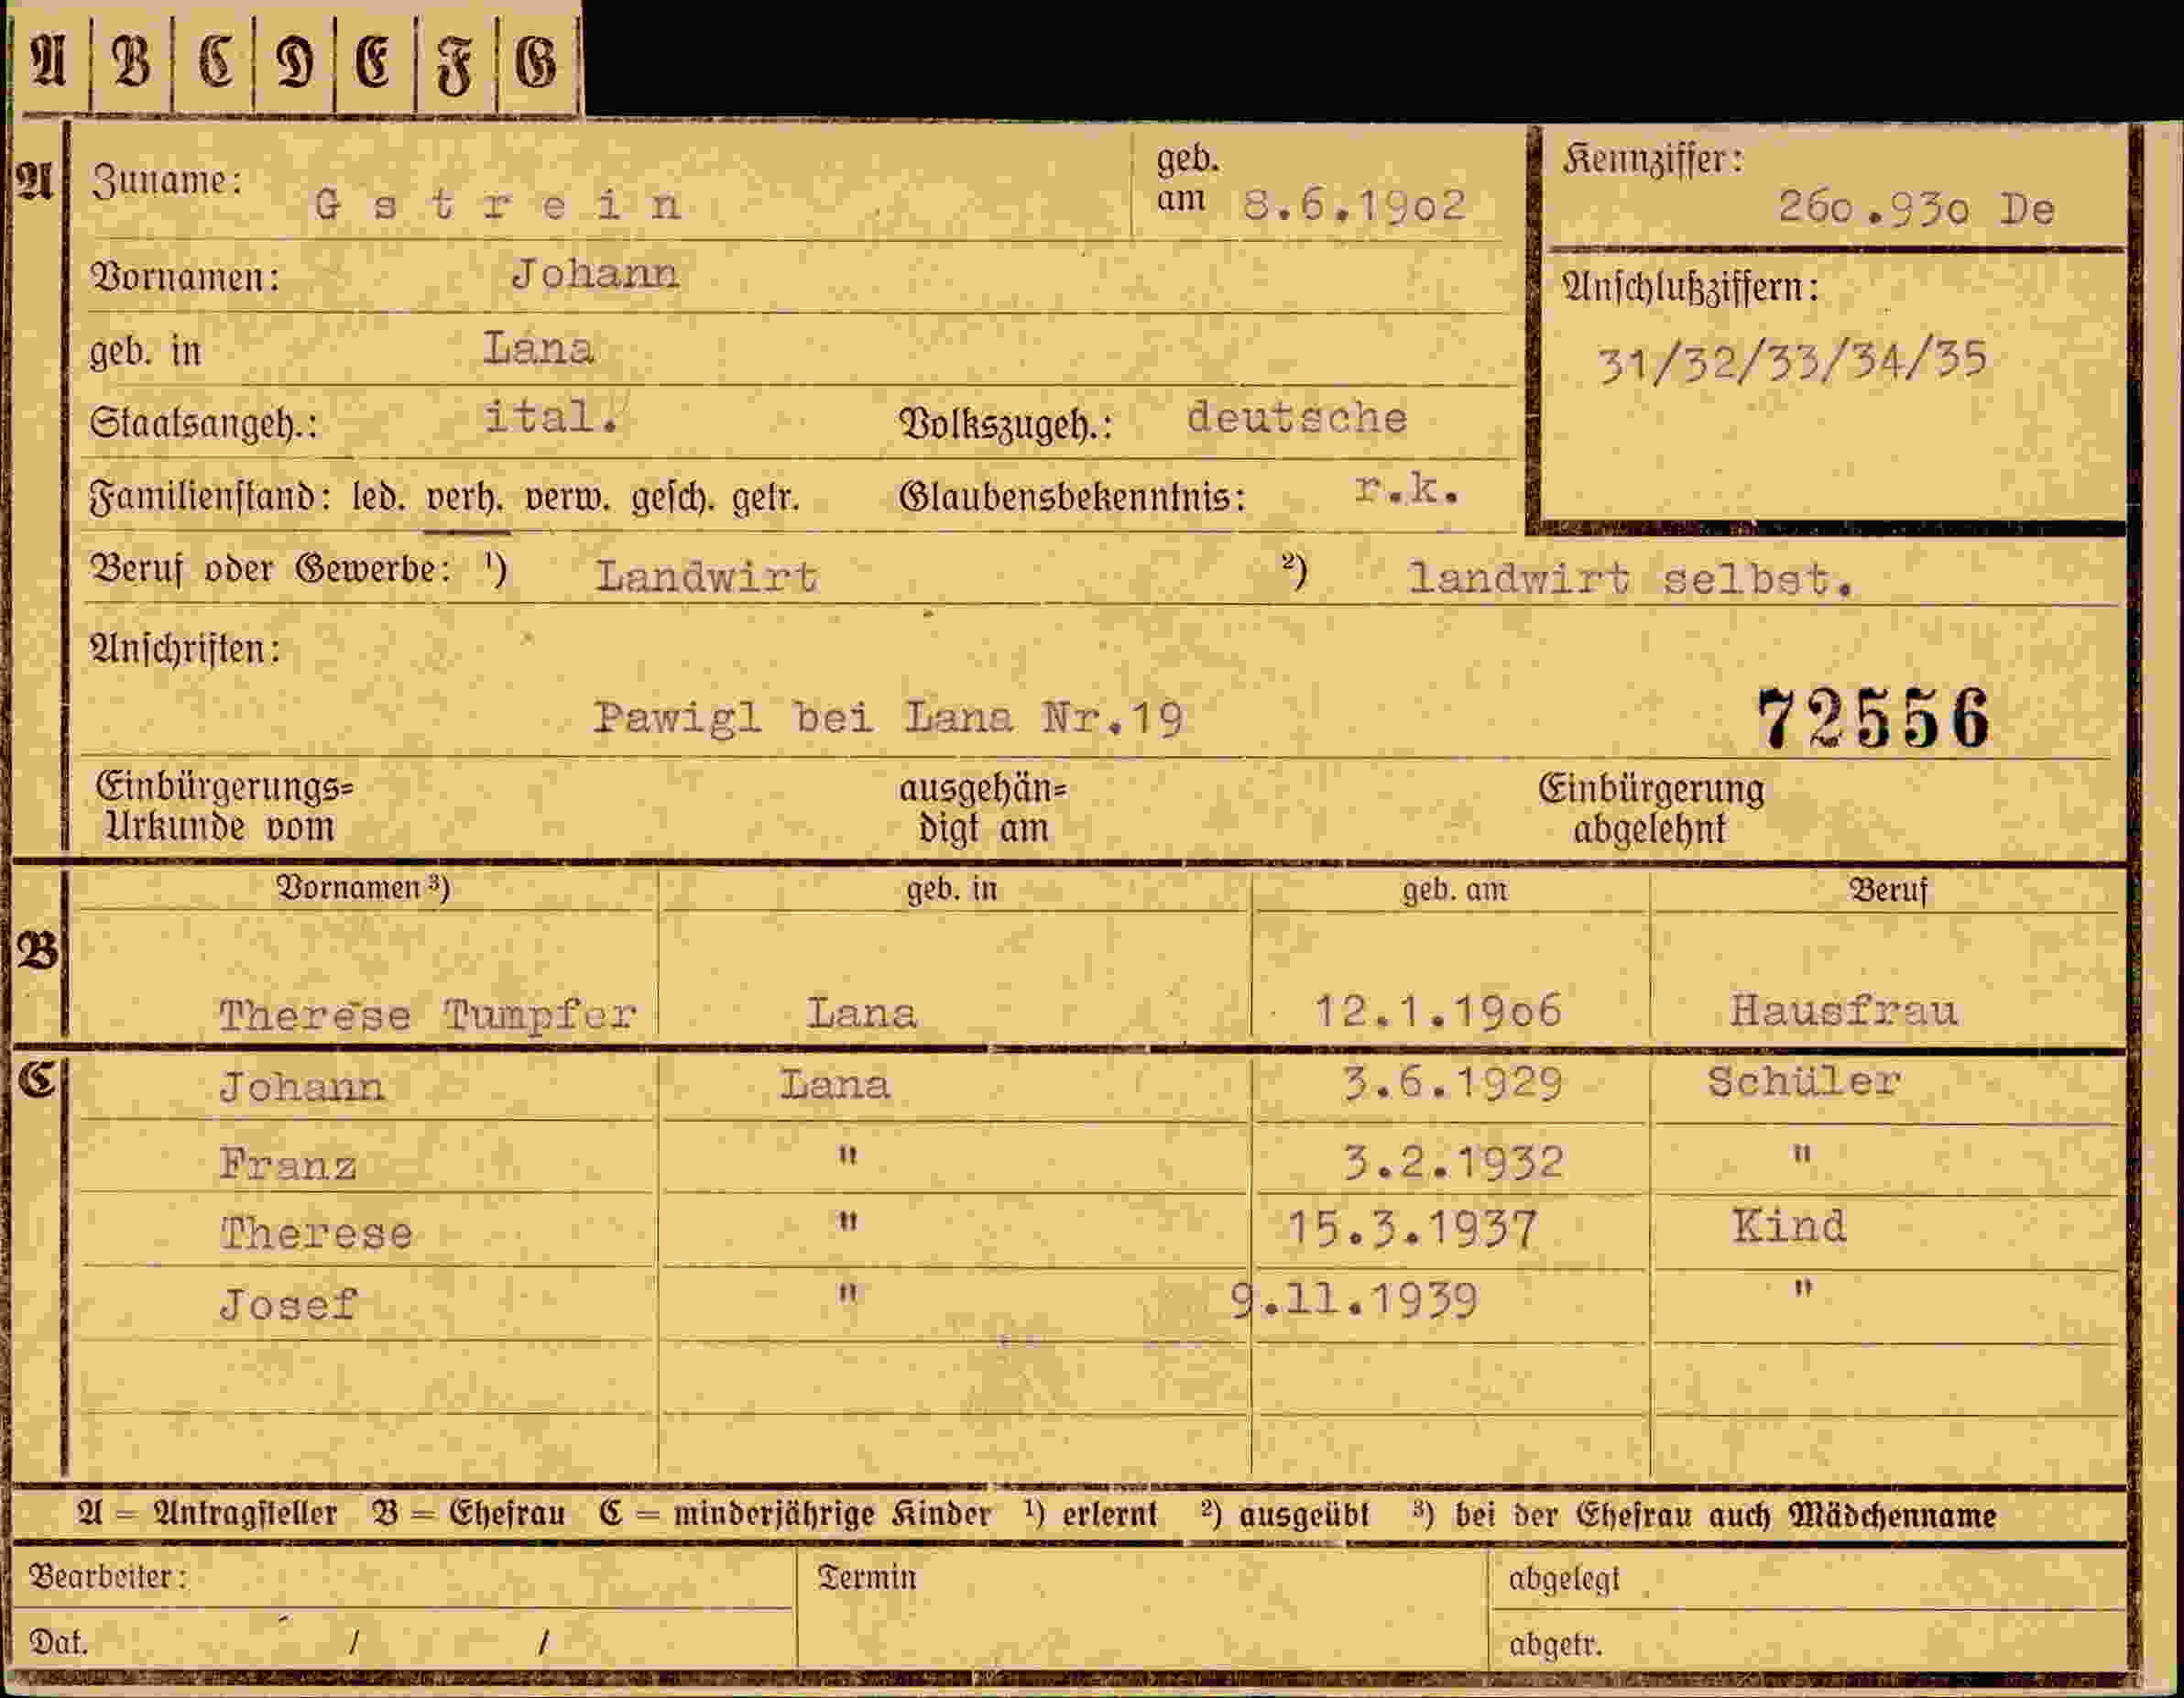 A B C D E F G
A Zuname: Gstrein geb. am 8.6.1902 Kennziffer: 260.930 De
Vornamen: Johann Anschlußziffern:
geb. in Lana 31/32/33/34/35
Staatsangeh.: ital. Volkszugeh.: deutsche
Familienstand: led. verh. verw. gesch. getr. Glaubensbekenntnis: r.k.
Beruf oder Gewerbe: ¹) Landwirt ²) landwirt selbst.
Anschriften:
Pawigl bei Lana Nr.19 72556
Einbürgerungs= Urkunde vom ausgehän= digt am Einbürgerung abgelehnt
Vornamen ³) geb. in geb. am Beruf
B
Therese Tumpfer Lana 12.1.1906 Hausfrau
C Johann Lana 3.6.1929 Schüler
Franz " 3.2.1932 "
Therese " 15.3.1937 Kind
Josef " 9.11.1939 "
A = Antragsteller B = Ehefrau C = minderjährige Kinder ¹) erlernt ²) ausgeübt ³) bei der Ehefrau auch Mädchenname
Bearbeiter: Termin abgelegt
Dat. / / abgetr.